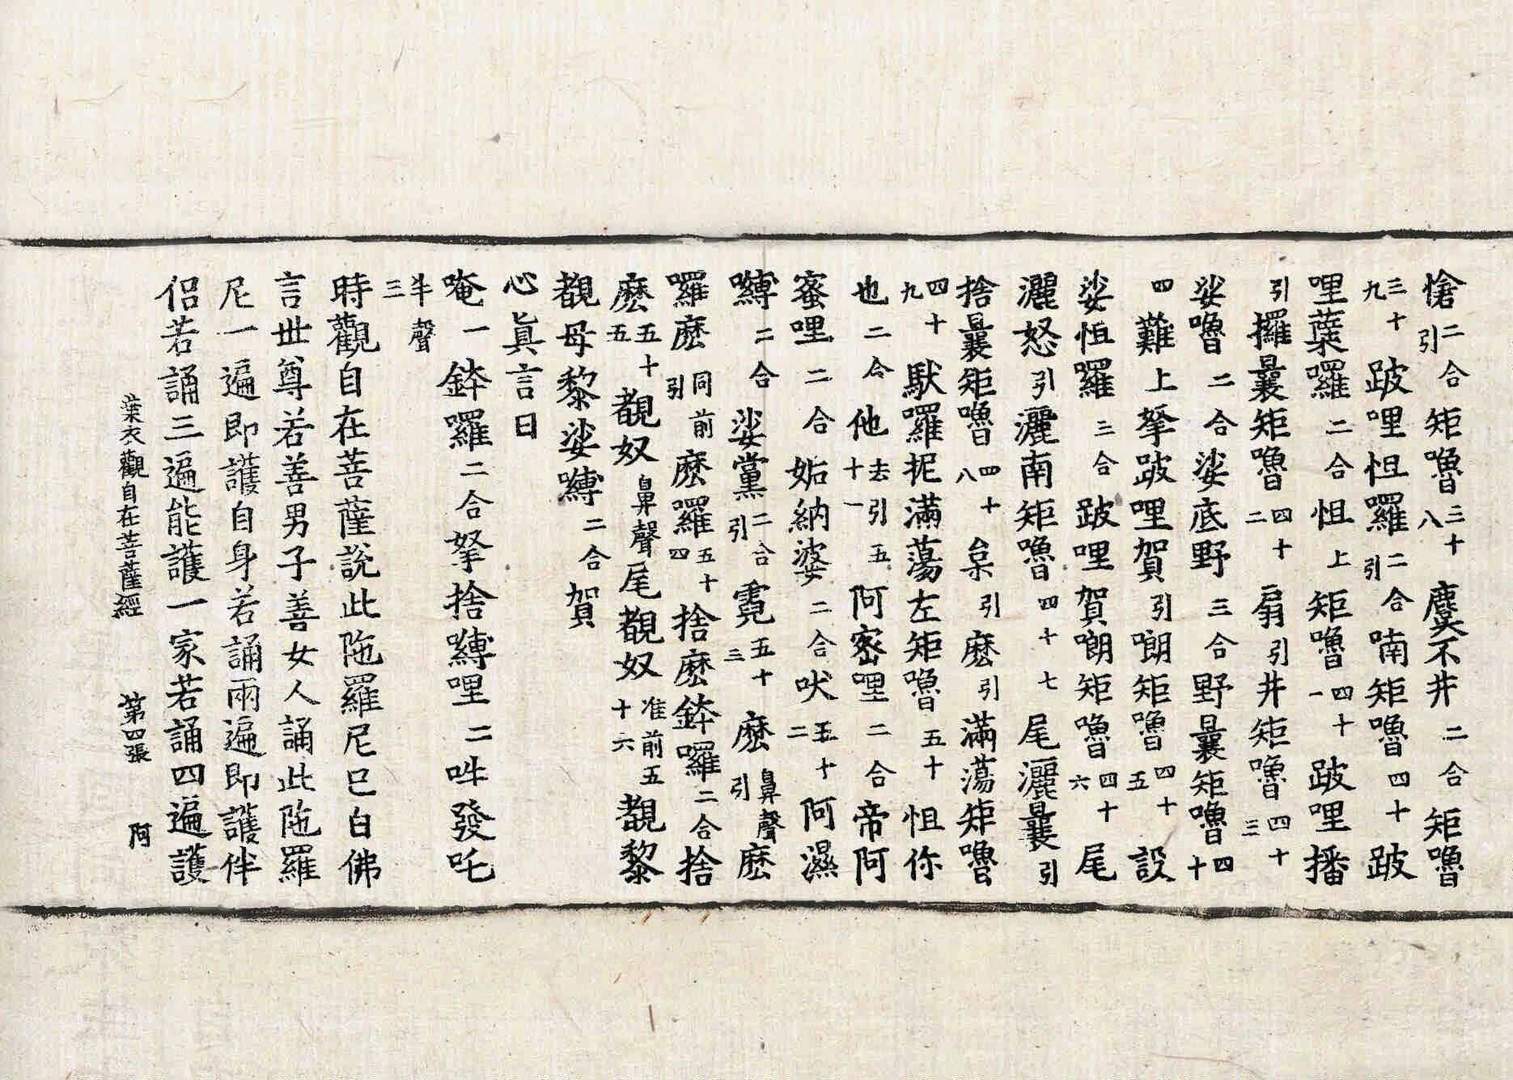 愴二合引矩嚕三十八麌不井二合矩嚕
三十九跛哩怛囉二合引喃矩嚕四十跛
哩蘗囉二合怛上矩嚕四十一跛哩播
引攞曩矩嚕四十二扇引井矩嚕四十三
娑嚕二合娑底野三合野曩矩嚕四十
四難上拏跛哩賀引嘲矩嚕四十五設
娑怛羅三合跛哩賀嘲矩嚕四十六尾
灑怒引灑南矩嚕四十七尾灑曩引
捨曩矩嚕四十八枲引麼引滿蕩矩嚕
四十九馱羅抳滿蕩左矩嚕五十怛你
也二合他去引五十一阿密哩二合帝阿
蜜哩二合妬納婆二合吠五十二阿濕
嚩二合娑黨二合引霓五十三麼鼻聲引麼
羅麽同前引麽羅五十四捨麽鉢囉二合捨
麽五十五覩奴鼻聲尾覩奴准前五十六覩黎
覩母黎娑嚩二合賀
心眞言曰
唵一鉢囉二合拏捨嚩哩二吽發吒
半聲三
時觀自在菩薩說此陁羅尼已白佛
言世尊若善男子善女人誦此陁羅
尼一遍即護自身若誦兩遍即護伴
侣若誦三遍能護一家若誦四遍護
葉衣觀自在菩薩經 第四張 阿